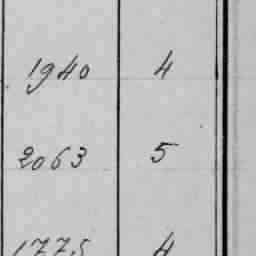 1940 4
2063 5
1775 4